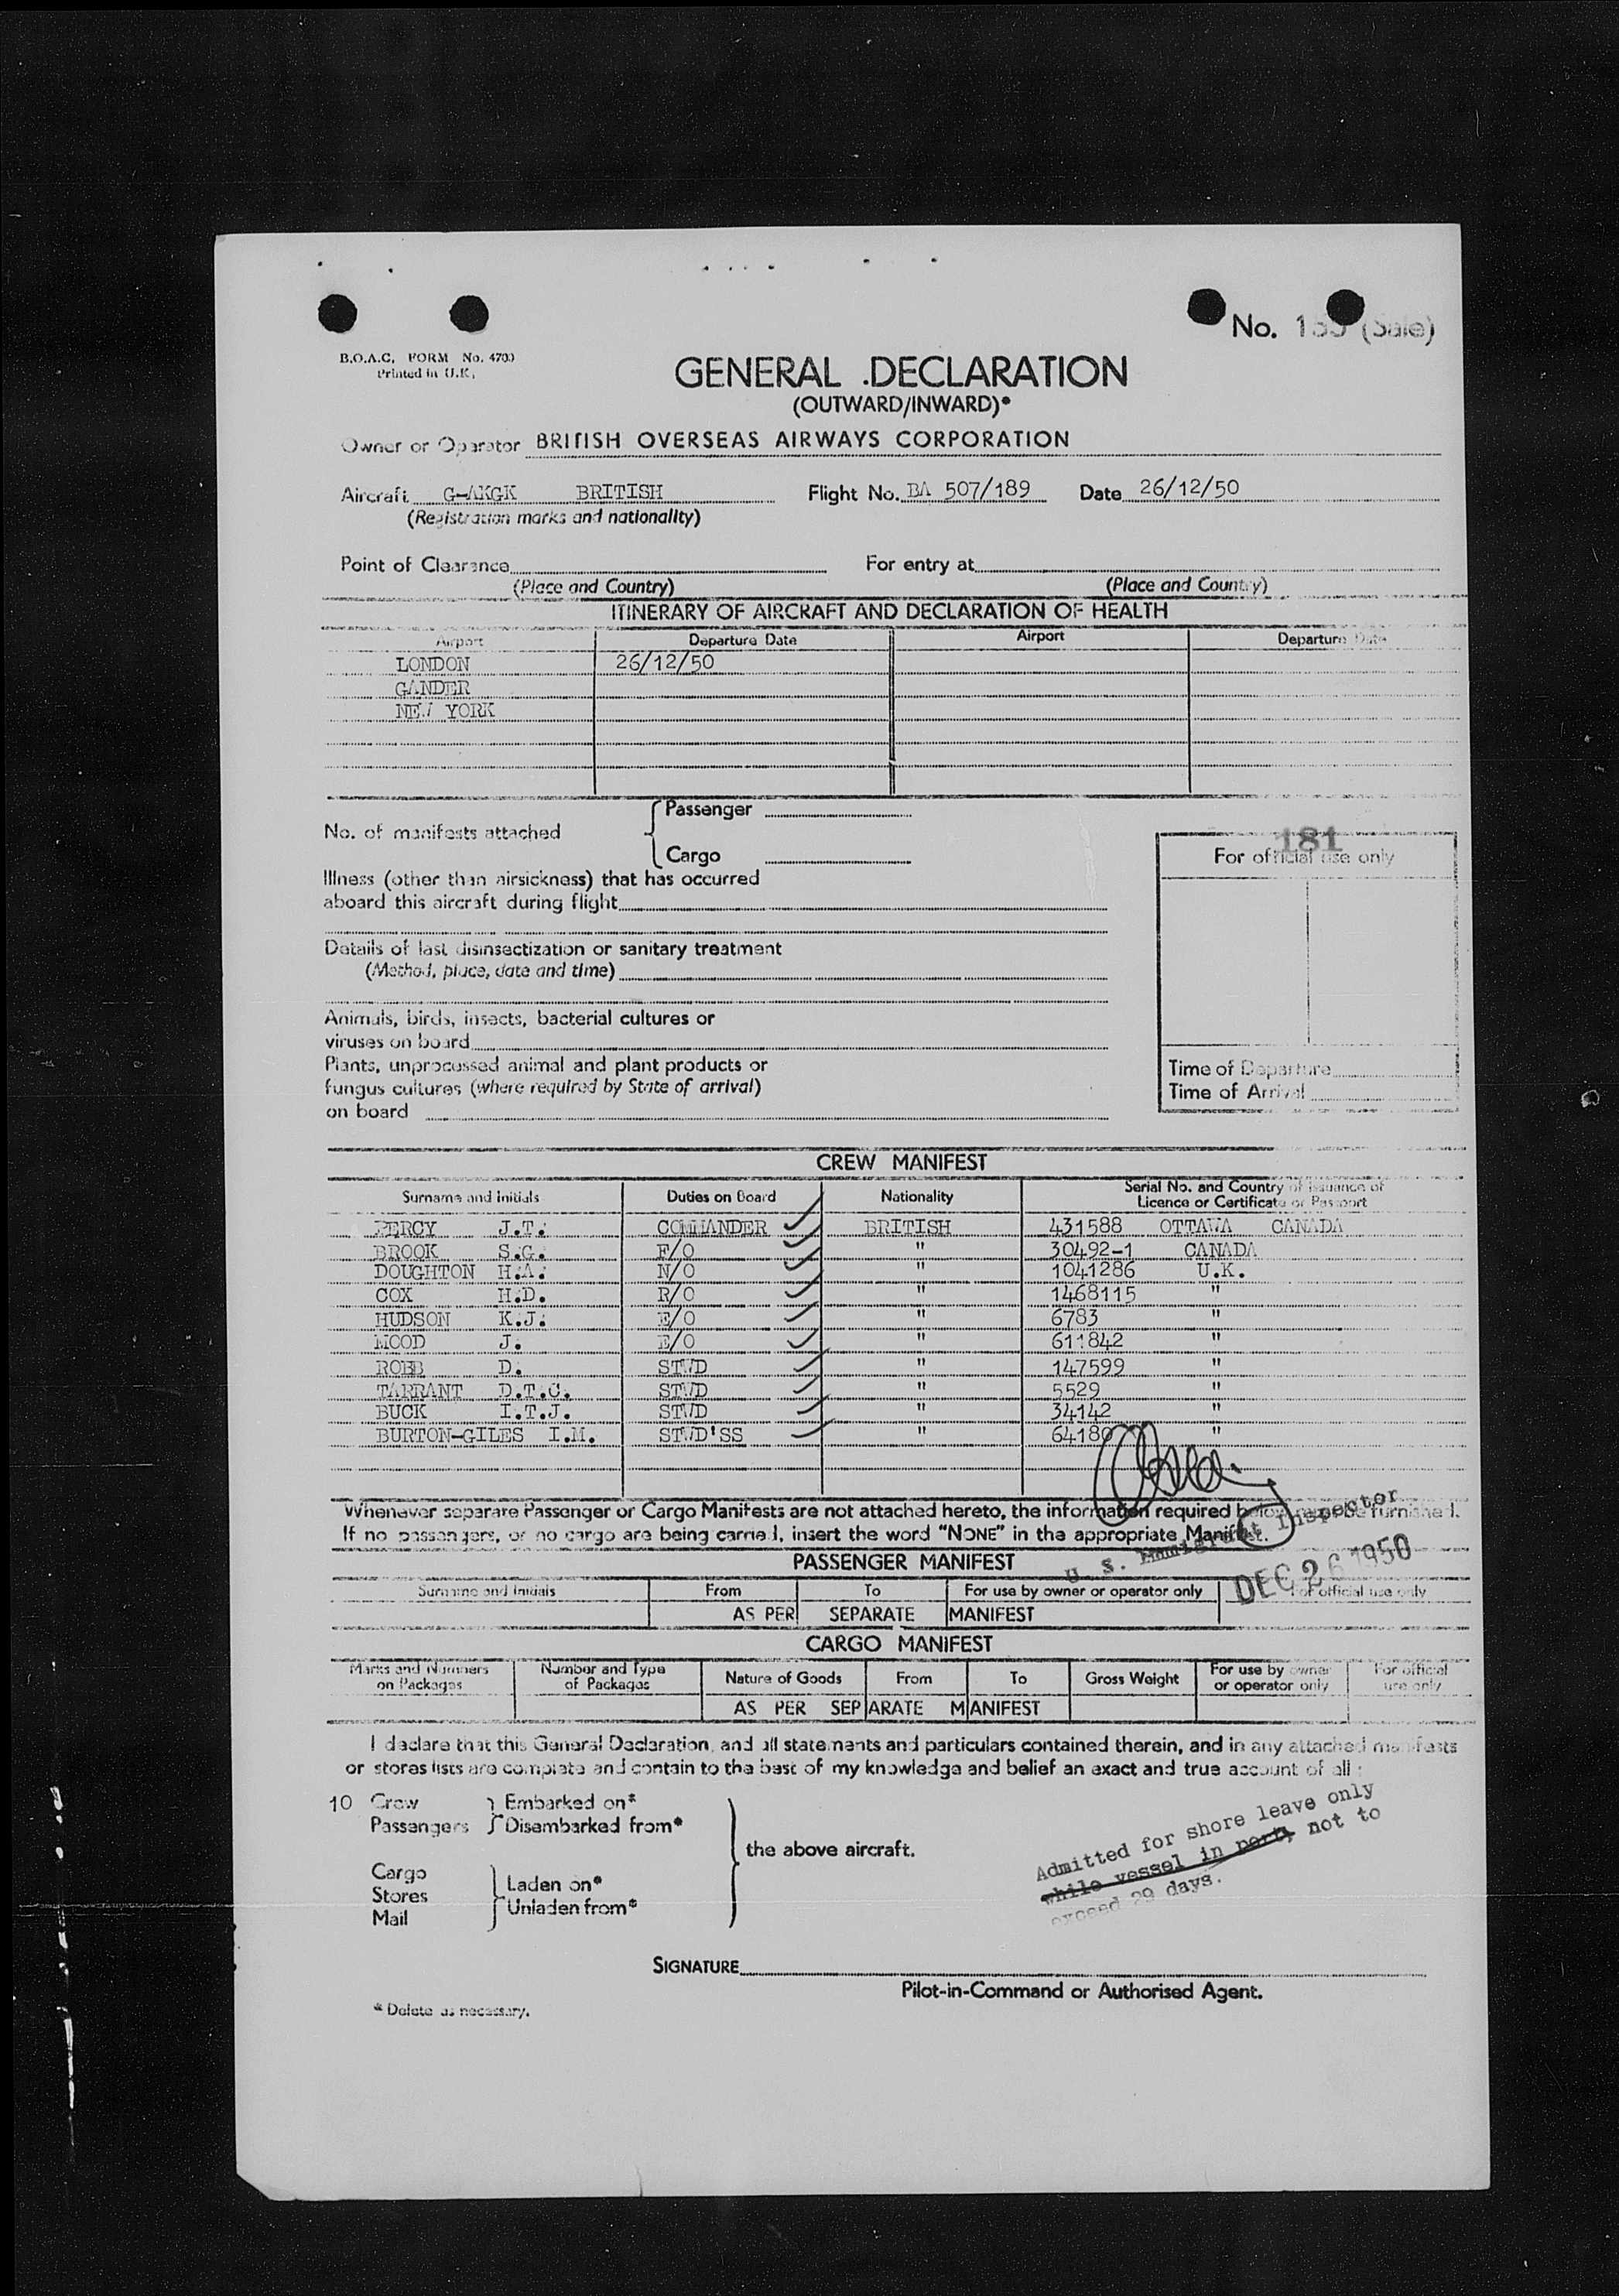 No. (Sale)
B.O.A.C. FORM No. 4700
Printed in U.K.
GENERAL DECLARATION
(OUTWARD/INWARD)*
Owner or Operator BRITISH OVERSEAS AIRWAYS CORPORATION
Aircraft G-AKGK BRITISH Flight No. BA 507/189 Date 26/12/50
(Registration marks and nationality)
Point of Clearance For entry at
(Place and Country) (Place and Country)
ITINERARY OF AIRCRAFT AND DECLARATION OF HEALTH
Airport Departure Date Airport Departure Date
LONDON 26/12/50
GANDER
NEW YORK
Passenger
No. of manifests attached
Cargo
181
For official use only
Illness (other than airsickness) that has occurred
aboard this aircraft during flight
Details of last disinsectization or sanitary treatment
(Method, place, date and time)
Animals, birds, insects, bacterial cultures or
viruses on board
Plants, unprocessed animal and plant products or
fungus cultures (where required by State of arrival)
on board
Time of Departure
Time of Arrival
CREW MANIFEST
Surname and Initials Duties on Board Nationality Serial No. and Country of Issuance of
Licence or Certificate or Passport
PERCY J.T. COMMANDER BRITISH 431588 OTTAWA CANADA
BROOK S.G. F/O " 30492-1 CANADA
DOUGHTON H.A. N/O " 1041286 U.K.
COX H.D. R/O " 1468115 "
HUDSON K.J. E/O " 6783 "
MOOD J. E/O " 611842 "
ROBB D. STWD " 147599 "
TARRANT D.T.C. STWD " 5529 "
BUCK I.T.J. STWD " 34142 "
BURTON-GILES I.M. STWD'SS " 64180 "
Whenever separate Passenger or Cargo Manifests are not attached hereto, the information required below must be furnished.
If no passengers, or no cargo are being carried, insert the word "NONE" in the appropriate Manifest.
U. S. Immigrant Inspector
DEC 26 1950
PASSENGER MANIFEST
Surname and Initials From To For use by owner or operator only For official use only
AS PER SEPARATE MANIFEST
CARGO MANIFEST
Marks and Numbers on Packages Number and Type of Packages Nature of Goods From To Gross Weight For use by owner or operator only For official use only
AS PER SEPARATE MANIFEST
I declare that this General Declaration, and all statements and particulars contained therein, and in any attached manifests
or stores lists are complete and contain to the best of my knowledge and belief an exact and true account of all :
10 Crew Embarked on*
Passengers Disembarked from*
the above aircraft.
Cargo
Stores Laden on*
Mail Unladen from*
Admitted for shore leave only
while vessel in port, not to
exceed 29 days.
SIGNATURE
Pilot-in-Command or Authorised Agent.
* Delete as necessary.